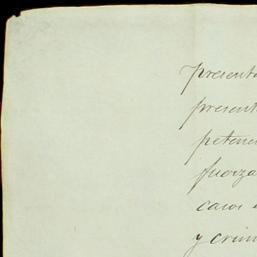 presenta
present
petenci
fuerza
casos
y crim